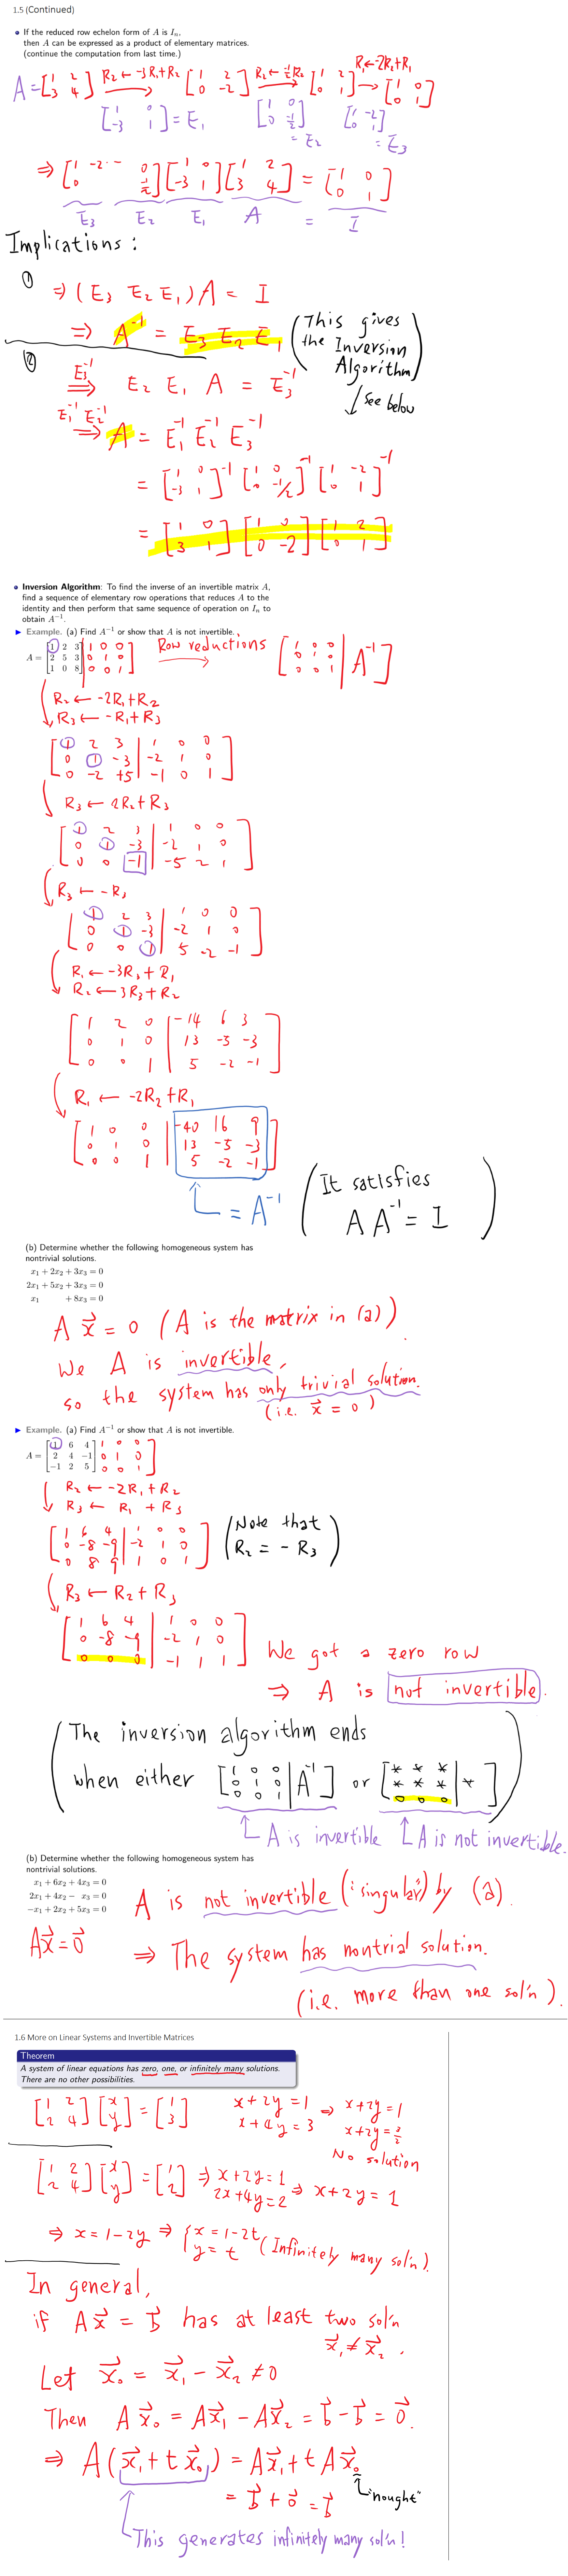 1.5 (Continued)
• If the reduced row echelon form of A is Iₙ,
then A can be expressed as a product of elementary matrices.
(continue the computation from last time.)
A = [1 2; 3 4] R₂ ← -3R₁+R₂ → [1 2; 0 -2] R₂ ← -½R₂ → [1 2; 0 1] R₁ ← -2R₂+R₁ → [1 0; 0 1]
[1 0; -3 1] = E₁ [1 0; 0 -½] = E₂ [1 -2; 0 1] = E₃
E₃ E₂ E₁ A = I
Implications :
①
⇒ (E₃ E₂ E₁) A = I
⇒ A⁻¹ = E₃ E₂ E₁ (This gives the Inversion Algorithm)
↓ see below
②
E₃⁻¹ ⇒ E₂ E₁ A = E₃⁻¹
E₁⁻¹ E₂⁻¹ ⇒ A = E₁⁻¹ E₂⁻¹ E₃⁻¹
= [1 0; -3 1]⁻¹ [1 0; 0 -1/2]⁻¹ [1 -2; 0 1]⁻¹
= [1 0; 3 1] [1 0; 0 -2] [1 2; 0 1]
• Inversion Algorithm: To find the inverse of an invertible matrix A,
find a sequence of elementary row operations that reduces A to the
identity and then perform that same sequence of operation on Iₙ to
obtain A⁻¹.
▶ Example. (a) Find A⁻¹ or show that A is not invertible.
A = [1 2 3 | 1 0 0; 2 5 3 | 0 1 0; 1 0 8 | 0 0 1] Row reductions → [1 0 0; 0 1 0; 0 0 1 | A⁻¹]
R₂ ← -2R₁+R₂
R₃ ← -R₁+R₃
[1 2 3 | 1 0 0; 0 1 -3 | -2 1 0; 0 -2 +5 | -1 0 1]
R₃ ← 2R₂+R₃
[1 2 3 | 1 0 0; 0 1 -3 | -2 1 0; 0 0 -1 | -5 2 1]
R₃ ← -R₃
[1 2 3 | 1 0 0; 0 1 -3 | -2 1 0; 0 0 1 | 5 -2 -1]
R₁ ← -3R₃+R₁
R₂ ← 3R₃+R₂
[1 2 0 | -14 6 3; 0 1 0 | 13 -5 -3; 0 0 1 | 5 -2 -1]
R₁ ← -2R₂+R₁
[1 0 0 | -40 16 9; 0 1 0 | 13 -5 -3; 0 0 1 | 5 -2 -1]
= A⁻¹ (It satisfies A A⁻¹ = I)
(b) Determine whether the following homogeneous system has
nontrivial solutions.
x₁ + 2x₂ + 3x₃ = 0
2x₁ + 5x₂ + 3x₃ = 0
x₁ + 8x₃ = 0
A x⃗ = 0 (A is the matrix in (a)).
We A is invertible,
so the system has only trivial solution.
(i.e. x⃗ = 0)
▶ Example. (a) Find A⁻¹ or show that A is not invertible.
A = [1 6 4 | 1 0 0; 2 4 -1 | 0 1 0; -1 2 5 | 0 0 1]
R₂ ← -2R₁+R₂
R₃ ← R₁+R₃
[1 6 4 | 1 0 0; 0 -8 -9 | -2 1 0; 0 8 9 | 1 0 1] (Note that R₂ = -R₃)
R₃ ← R₂+R₃
[1 6 4 | 1 0 0; 0 -8 -9 | -2 1 0; 0 0 0 | -1 1 1]
We got a zero row
⇒ A is not invertible.
(The inversion algorithm ends
when either [1 0 0; 0 1 0; 0 0 1 | A⁻¹] or [* * *; * * *; 0 0 0 | *])
A is invertible A is not invertible.
(b) Determine whether the following homogeneous system has
nontrivial solutions.
x₁ + 6x₂ + 4x₃ = 0
2x₁ + 4x₂ − x₃ = 0
−x₁ + 2x₂ + 5x₃ = 0
A x⃗ = 0⃗
A is not invertible (: singular) by (a).
⇒ The system has nontrial solution.
(i.e. more than one sol'n).
1.6 More on Linear Systems and Invertible Matrices
Theorem
A system of linear equations has zero, one, or infinitely many solutions.
There are no other possibilities.
[1 2; 2 4] [x; y] = [1; 3] x+2y=1 ⇒ x+2y=1
x+4y=3 x+2y=3/2
No solution
[1 2; 2 4] [x; y] = [1; 2] ⇒ x+2y=1
2x+4y=2 ⇒ x+2y=1
⇒ x=1-2y ⇒ {x=1-2t
y=t (Infinitely many sol'n).
In general,
if A x⃗ = b⃗ has at least two sol'n
x⃗₁ ≠ x⃗₂.
Let x⃗₀ = x⃗₁ - x⃗₂ ≠ 0
Then A x⃗₀ = A x⃗₁ - A x⃗₂ = b⃗ - b⃗ = 0⃗.
⇒ A(x⃗₁ + t x⃗₀) = A x⃗₁ + t A x⃗₀
= b⃗ + 0⃗ = b⃗
"nought"
This generates infinitely many sol'n!